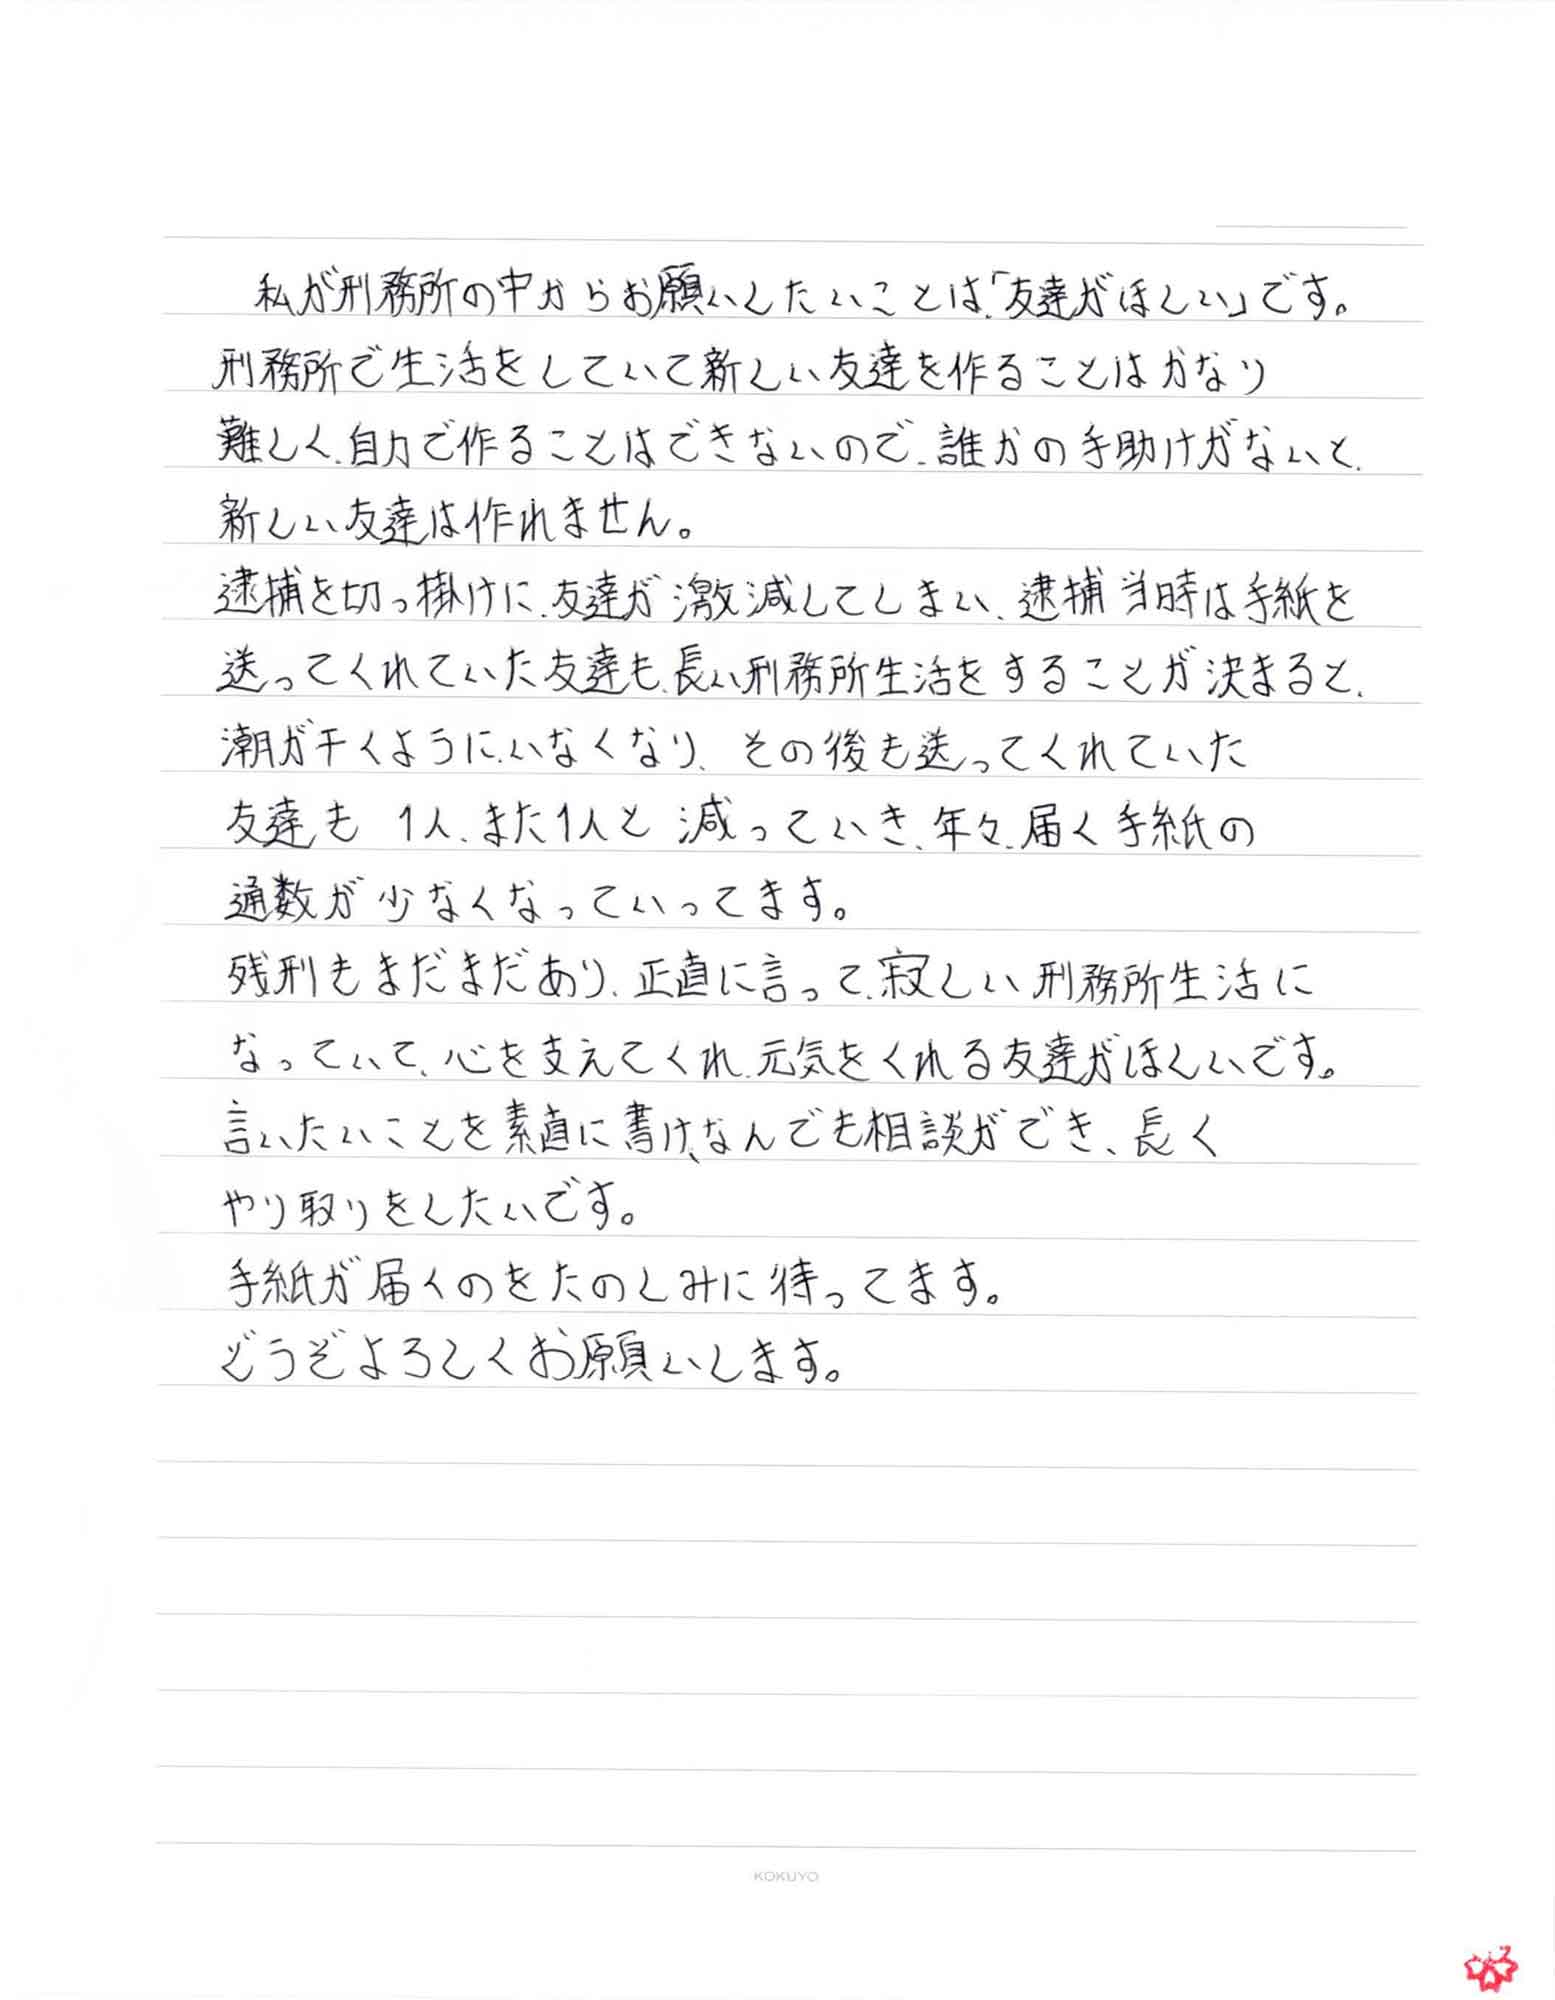 私が刑務所の中からお願いしたいことは、「友達がほしい」です。
刑務所で生活をしていて新しい友達を作ることはかなり
難しく、自力で作ることはできないので、誰かの手助けがないと、
新しい友達は作れません。
逮捕を切っ掛けに、友達が激減してしまい、逮捕当時は手紙を
送ってくれていた友達も、長い刑務所生活をすることが決まると、
潮が干くように、いなくなり、その後も送ってくれていた
友達も 1人、また1人と減っていき、年々、届く手紙の
通数が少なくなっていってます。
残刑もまだまだあり、正直に言って、寂しい刑務所生活に
なっていて、心を支えてくれ、元気をくれる友達がほしいです。
言いたいことを素直に書け、なんでも相談ができ、長く
やり取りをしたいです。
手紙が届くのをたのしみに待ってます。
どうぞよろしくお願いします。
KOKUYO